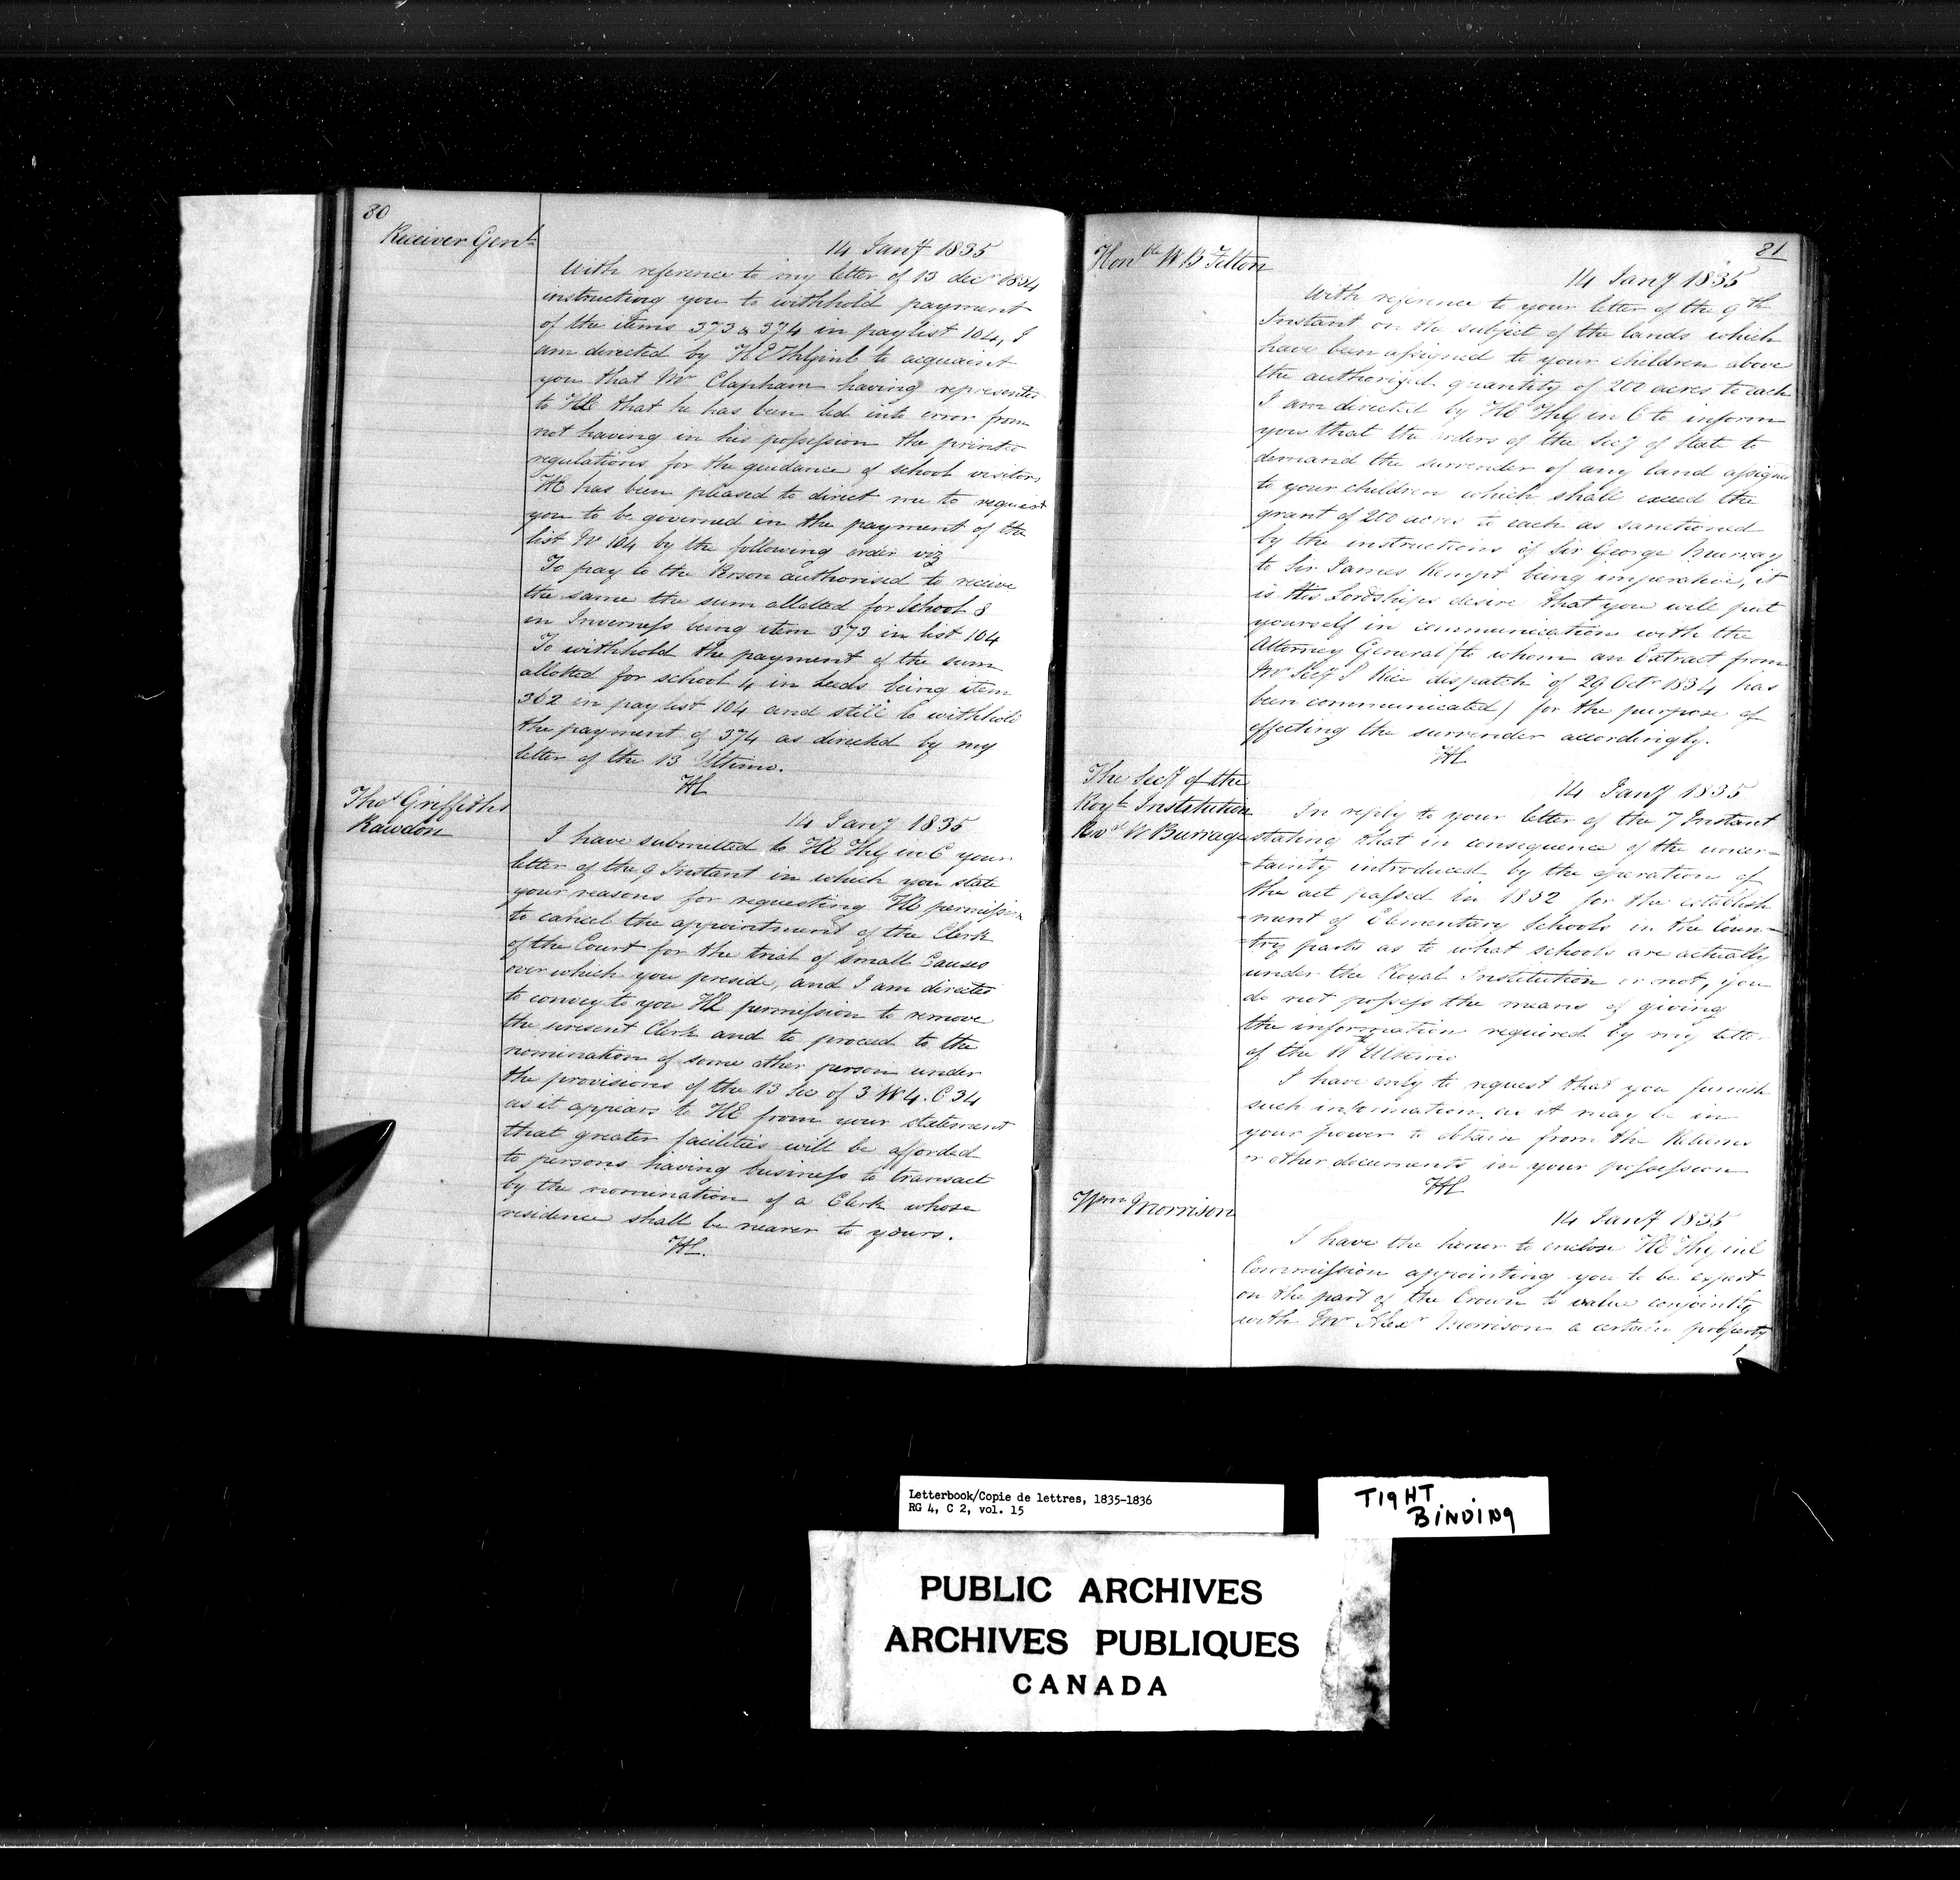 80
Receiver Genl
14 Jany 1835
With reference to my letter of 13 decr 1834
instructing you to withhold payment
of the items 373 & 374 in paylist 104, I
am directed by HE to acquaint
you that Mr Clapham having represented
to HE that he has been led into error from
not having in his possession the printed
regulations for the guidance of school visitors
HE has been pleased to direct me to request
you to be governed in the payment of the
list No 104 by the following order viz
To pay to the Person authorised to receive
the same the sum allotted for School 8
in Inverness being item 373 in list 104
To withhold the payment of the sum
allotted for school 4 in Leeds being item
362 in paylist 104 and still to withhold
the payment of 374 as directed by my
letter of the 13 Ultimo.
HC
Thos Griffiths
Rawdon
14 Jany 1835
I have submitted to HE The G in C your
letter of the 9 Instant in which you state
your reasons for requesting HE permission
to cancel the appointment of the Clerk
of the Court for the trial of small Causes
over which you preside, and I am directed
to convey to you HE permission to remove
the present Clerk and to proceed to the
nomination of some other person under
the provisions of the 13 Sec of 3 W 4. C 34
as it appears to HE from your statement
that greater facilities will be afforded
to persons having business to transact
by the nomination of a Clerk whose
residence shall be nearer to yours.
HC.
81
Honble W B Felton
14 Jany 1835
With reference to your letter of the 9th
Instant on the subject of the lands which
have been assigned to your children above
the authorized quantity of 200 acres to each
I am directed by HE The G in C to inform
you that the orders of the Secy of State to
demand the surrender of any land assigned
to your children which shall exceed the
grant of 200 acres to each as sanctioned
by the instructions of Sir George Murray
to Sir James Kempt being imperative, it
is His Lordships desire that you will put
yourself in communication with the
Attorney General (to whom an Extract from
Mr Secy S Rice dispatch of 29 Octr 1834 has
been communicated) for the purpose of
effecting the surrender accordingly.
HC
The Secy of the
Royl Institution
Revd W Burrage
14 Jany 1835
In reply to your letter of the 7 Instant
stating that in consequence of the uncer=
=tainty introduced by the operation of
the act passed in 1832 for the establish
=ment of Elementary Schools in the Coun=
=try parts as to what schools are actually
under the Royal Institution or not, you
do not possess the means of giving
the information required by my letter
of the Ultimo
I have only to request that you furnish
such information as it may be in
your power to obtain from the Returns
or other documents in your possession
HC
Wm Morrison
14 Jany 1835
I have the honor to enclose HE The G in C
Commission appointing you to be expert
on the part of the Crown to value conjointly
with Mr Alexr Morrison a certain property
Letterbook/Copie de lettres, 1835-1836
RG 4, C 2, vol. 15
TIGHT
BINDING
PUBLIC ARCHIVES
ARCHIVES PUBLIQUES
CANADA